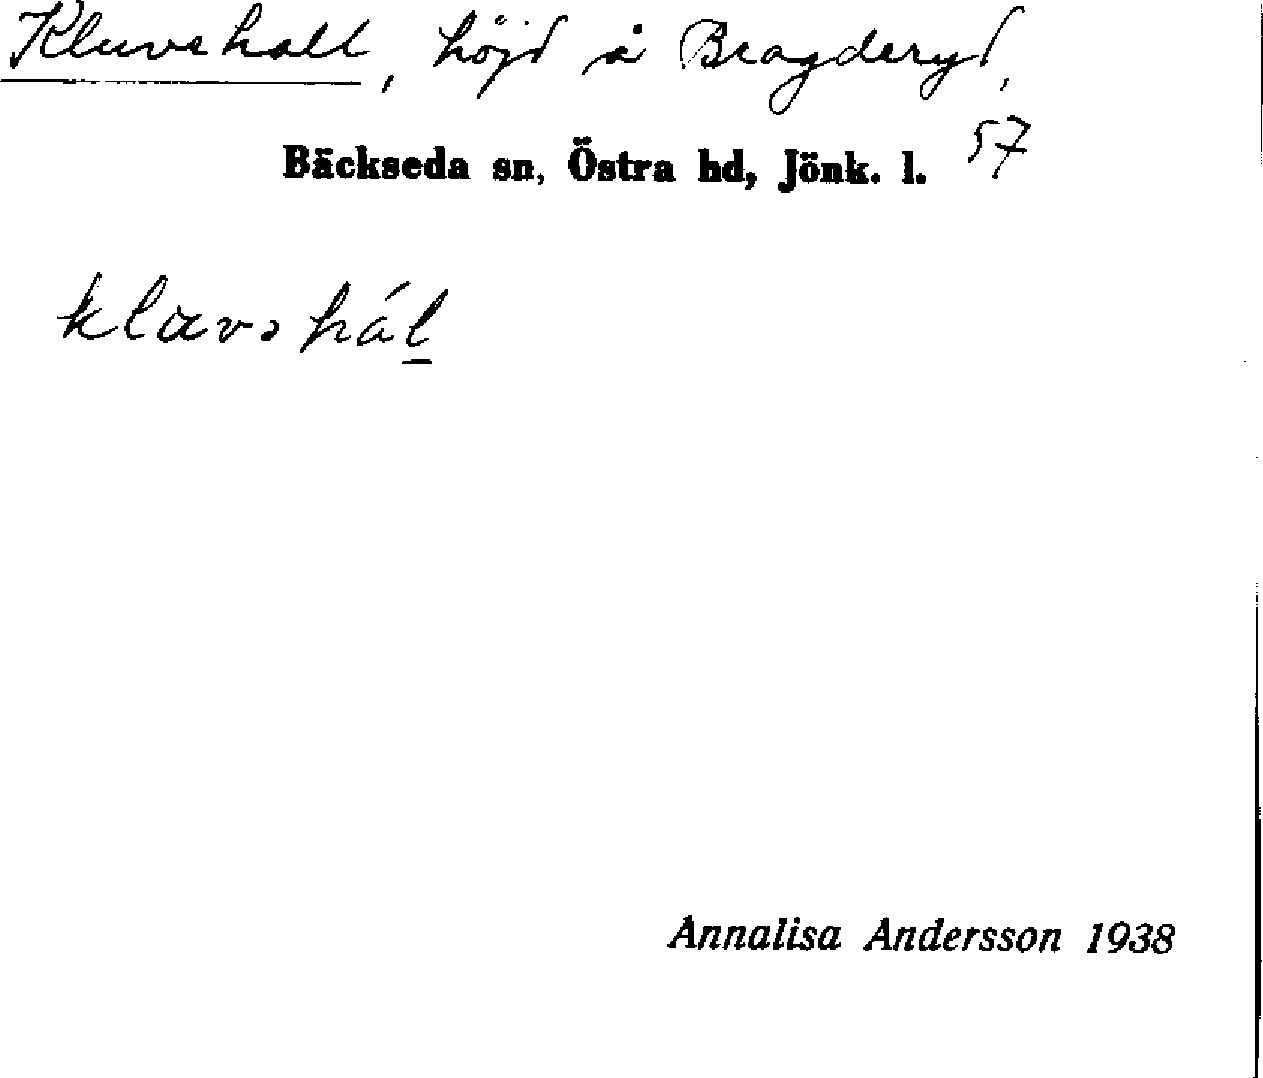 Kluvehall, höjd å Bragderyd,
57
Bäckseda sn, Östra hd, Jönk. l.
Annalisa Andersson 1938